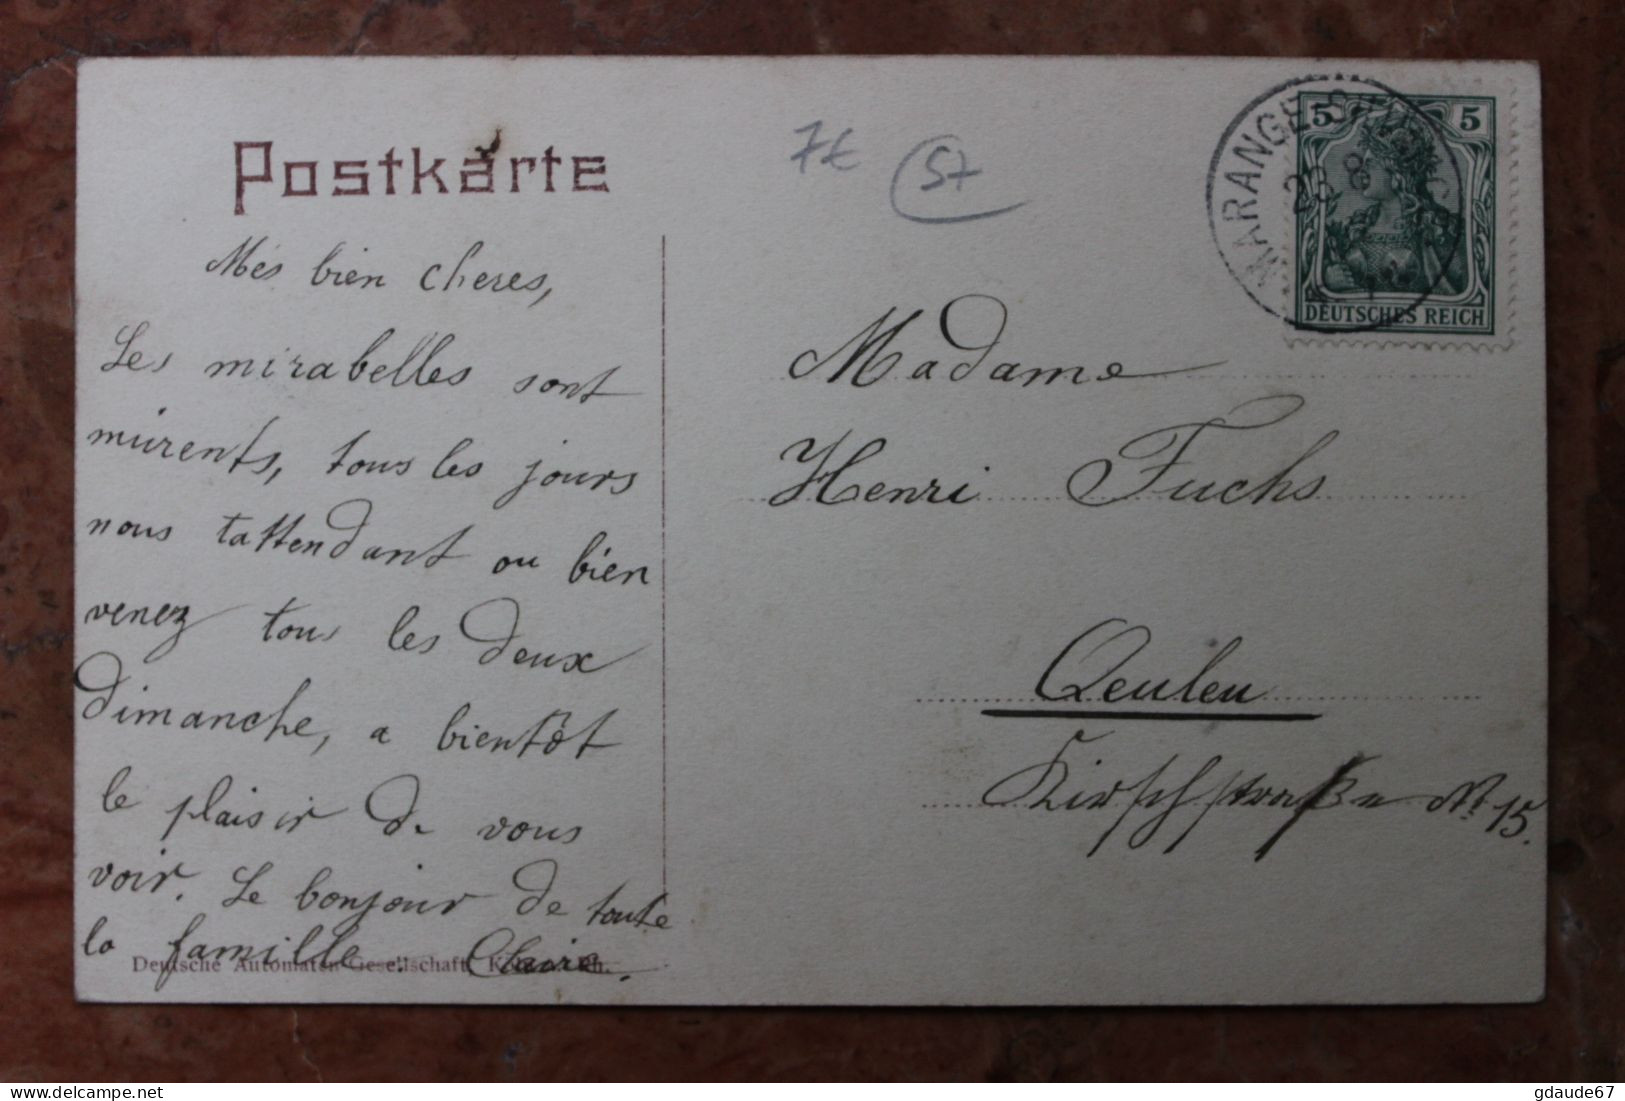 Postkarte
7€ 57
Mes bien cheres,
Les mirabelles sont
mûrents, tous les jours
nous t'attendant ou bien
venez tous les deux
dimanche, a bientôt
le plaisir de vous
voir. Le bonjour de toute
la famille. Claire.
Deutsche Automaten-Gesellschaft
MARANGE-
23 8
5 5
DEUTSCHES REICH
Madame
Henri Fuchs
Queuleu
Kirschstraße No 15.
gdaude67